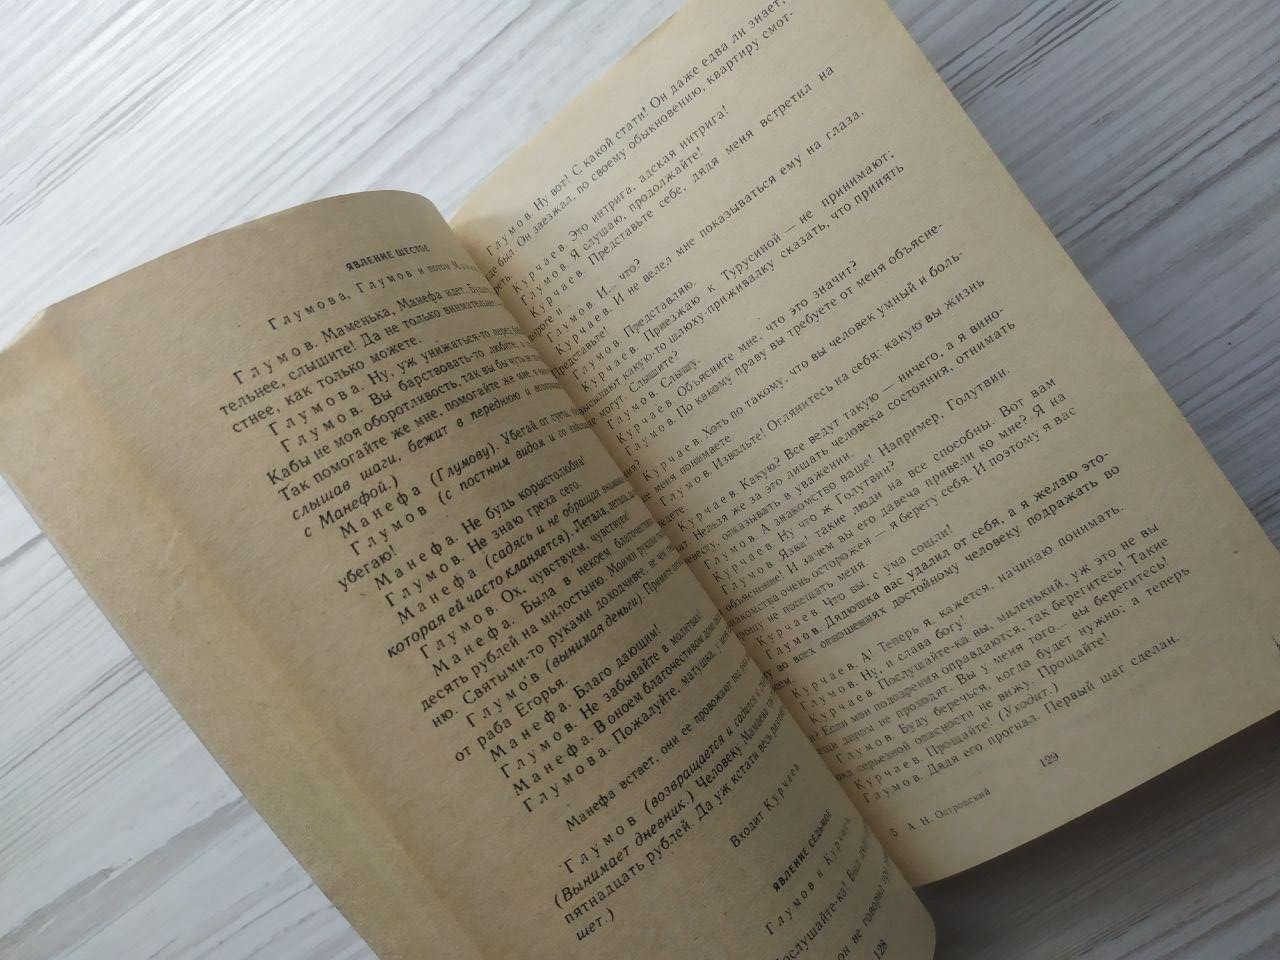 ЯВЛЕНИЕ ШЕСТОЕ
Глумова, Глумов и потом
Глумов. Маменька, Манефа идет. Будьте
тельнее, слышите! Да не только внимательнее
стнее, как только можете.
Глумова. Ну, уж унижаться-то перед
Глумов. Вы барствовать-то любите, а
Кабы не моя оборотливость, так вы бы чуть не
Так помогайте же мне, помогайте же мне, я вам
слышав шаги, бежит в переднюю и
с Манефой.)
Манефа (Глумову). Убегай от суеты,
Глумов (с постным видом и со
убегаю!
Манефа. Не будь корыстолюбив!
Глумов. Не знаю греха сего.
Манефа (садясь и не обращая
которая ей часто кланяется). Летала, летала,
Глумов. Ох, чувствуем, чувствуем!
Манефа. Была в некоем благочестивом
десять рублей на милостыню. Моими руками
ню. Святыми-то руками доходчивее, не
Глумов (вынимая деньги). Примите
от раба Егорья.
Манефа. Благо дающим!
Глумов. Не забывайте в молитвах!
Манефа. В оноем благочестивом доме
Глумова. Пожалуйте, матушка, у меня
Манефа встает, они ее провожают под
Глумов (возвращается и садится к
(Вынимает дневник.) Человеку Мамаева три
пятнадцать рублей. Да уж кстати весь разговор
шет.)
Входит Курчаев
ЯВЛЕНИЕ СЕДЬМОЕ
Глумов и Курчаев
Послушайте-ка! Был
он не говорил про
128
Глумов. Ну вот! С какой стати! Он даже едва ли знает,
где был. Он заезжал, по своему обыкновению, квартиру смот-
реть.
Курчаев. Это интрига, адская интрига!
Глумов. Я слушаю, продолжайте!
Курчаев. Представьте себе, дядя меня встретил на
дороге и...
Глумов. И... что?
Курчаев. И не велел мне показываться ему на глаза.
Представьте!
Глумов. Представляю.
Курчаев. Приезжаю к Турусиной — не принимают;
высылают какую-то шлюху-приживалку сказать, что принять
не могут. Слышите?
Глумов. Слышу.
Курчаев. Объясните мне, что это значит?
Глумов. По какому праву вы требуете от меня объясне-
ния?
Курчаев. Хоть по такому, что вы человек умный и боль-
ше меня понимаете.
Глумов. Извольте! Оглянитесь на себя: какую вы жизнь
ведете.
Курчаев. Какую? Все ведут такую — ничего, а я вино-
ват. Нельзя же за это лишать человека состояния, отнимать
невесту, отказывать в уважении.
Глумов. А знакомство ваше! Например, Голутвин.
Курчаев. Ну что ж Голутвин?
Глумов. Язва! такие люди на все способны. Вот вам
и объяснение! И зачем вы его давеча привели ко мне? Я на
знакомства очень осторожен — я берегу себя. И поэтому я вас
прошу не посещать меня.
Курчаев. Что вы, с ума сошли!
Глумов. Дядюшка вас удалил от себя, а я желаю это-
му во всех отношениях достойному человеку подражать во
всем.
Курчаев. А! Теперь я, кажется, начинаю понимать.
Глумов. Ну, и слава богу!
Курчаев. Послушайте-ка вы, миленький, уж это не вы
ли? Если мои подозрения оправдаются, так берегитесь! Такие
вещи даром не проходят. Вы у меня того... вы берегитесь!
Глумов. Буду беречься, когда будет нужно; а теперь
пока серьезной опасности не вижу. Прощайте!
Курчаев. Прощайте! (Уходит.)
Глумов. Дядя его прогнал. Первый шаг сделан.
5 А. Н. Островский
129